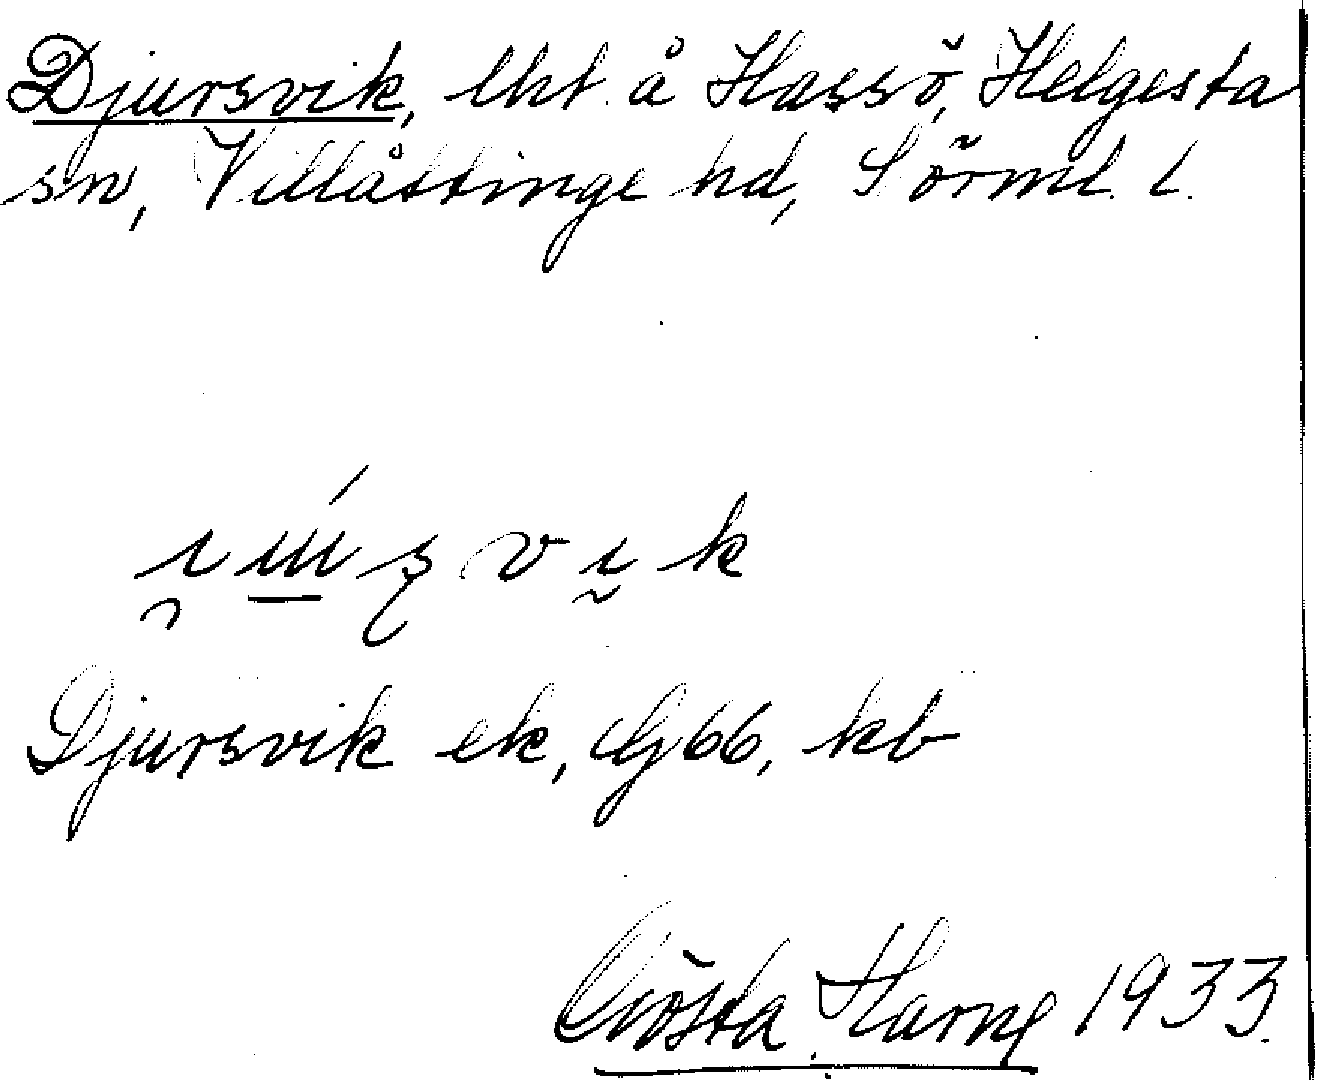 Djursvik, lht. å Hassö, Helgesta
sn, Villåttinge hd, Sörml. l.
Djursvik ek, Gj66, kb
Gösta Harne 1933.